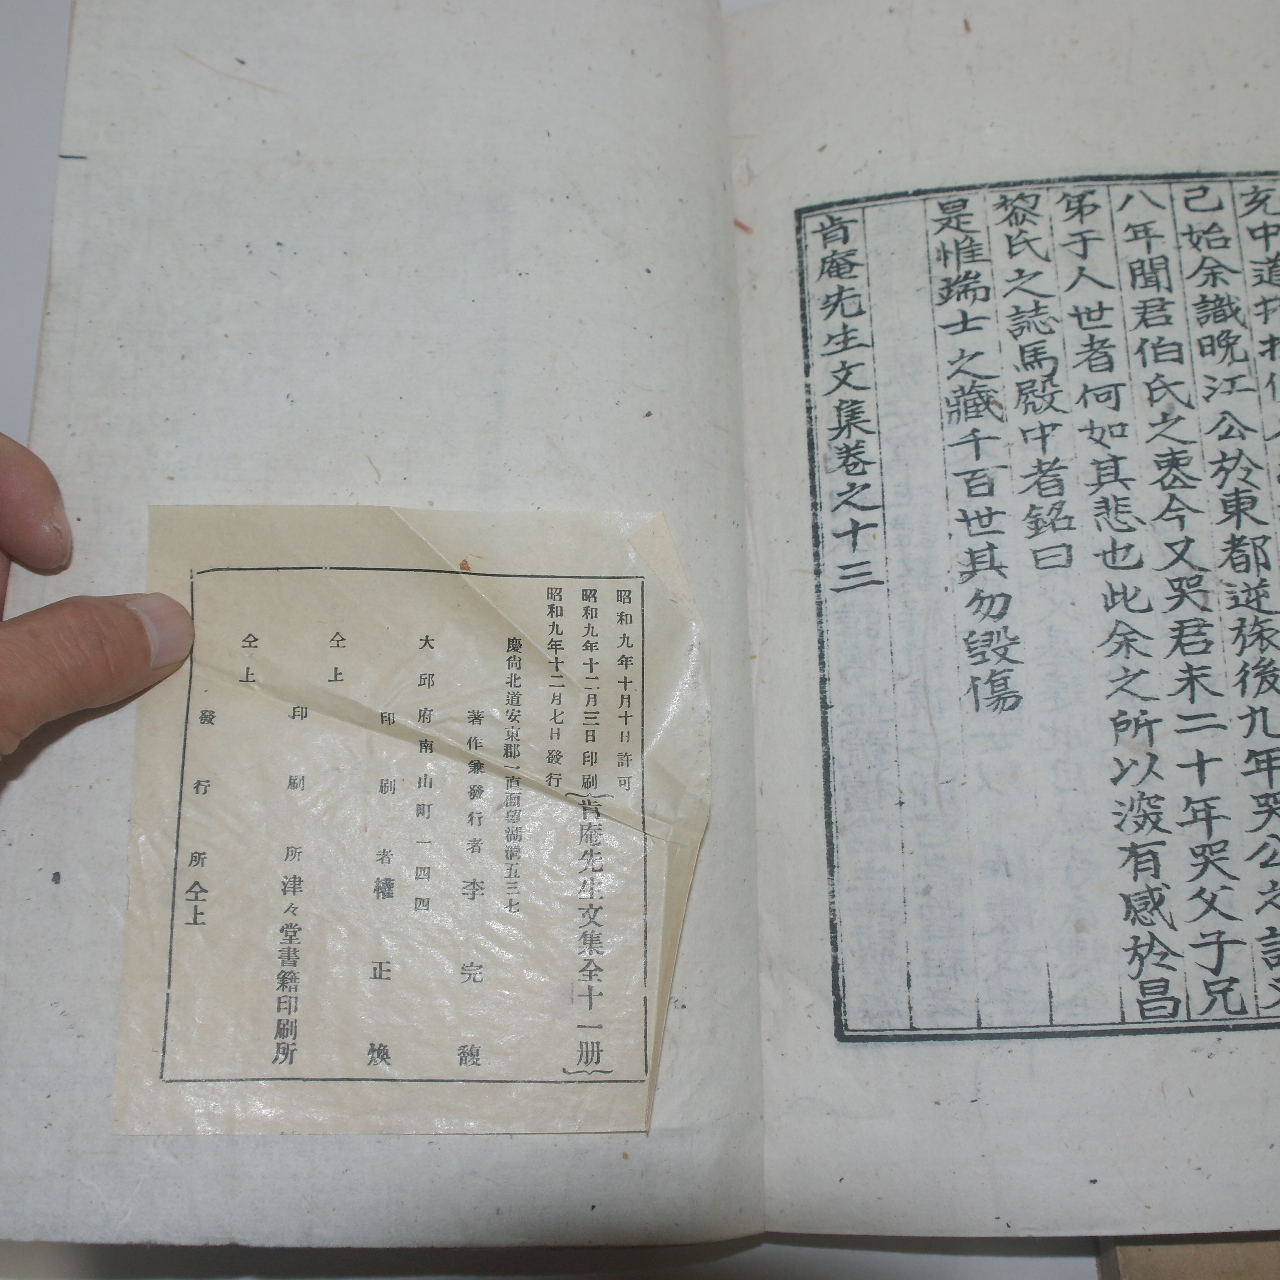 充中道
己始余識晩江公於東都逆旅後九年哭公之
八年聞君伯氏之喪今又哭君未二十年哭父子兄
弟于人世者何如其悲也此余之所以深有感於昌
黎氏之誌馬殿中者銘曰
是惟瑞士之藏千百世其勿毁傷
肯庵先生文集卷之十三
昭和九年十月十日許可
昭和九年十二月三日印刷
昭和九年十二月七日發行
肯庵先生文集全十一册
慶尙北道安東郡一直面望湖洞五三七
著作兼發行者 李完馥
大邱府南山町一四四
印刷者 權正煥
仝上
印刷所 津々堂書籍印刷所
仝上
發行所 仝上